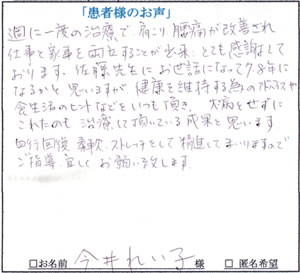 「患者様のお声」
週に一度の治療で、肩こり腰痛が改善され
仕事と家事を両立することが出来、とても感謝して
おります。佐藤先生にお世話になって7.8年に
なるかと思いますが、健康を維持する為のアドバイスや
食生活のヒントなどをいつも頂き、大病もせずに
これたのも治療して頂いている成果と思います
血行回復 柔軟、ストレッチとして精進してまいりますので
ご指導、宜しくお願い致します。
□お名前 今井れい子 様 □匿名希望